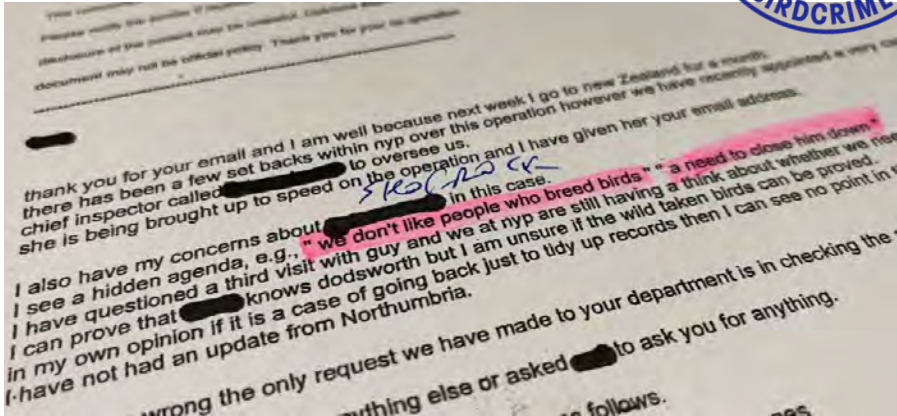 BIRDCRIME
Please verify the
disclosure of the content may be unlawful.
document may not be official policy. Thank you for your co-operation
thank you for your email and I am well because next week I go to new Zealand for a month.
there has been a few set backs within nyp over this operation however we have recently appointed a very
chief inspector called to oversee us.
she is being brought up to speed on the operation and I have given her your email address.
I also have my concerns about in this case.
I see a hidden agenda, e.g., " we don't like people who breed birds" " a need to close him down"
I have questioned a third visit with guy and we at nyp are still having a think about whether we need
I can prove that knows dodsworth but I am unsure if the wild taken birds can be proved.
in my own opinion if it is a case of going back just to tidy up records then I can see no point in
I have not had an update from Northumbria.
wrong the only request we have made to your department is in checking the
anything else or asked to ask you for anything.
follows.